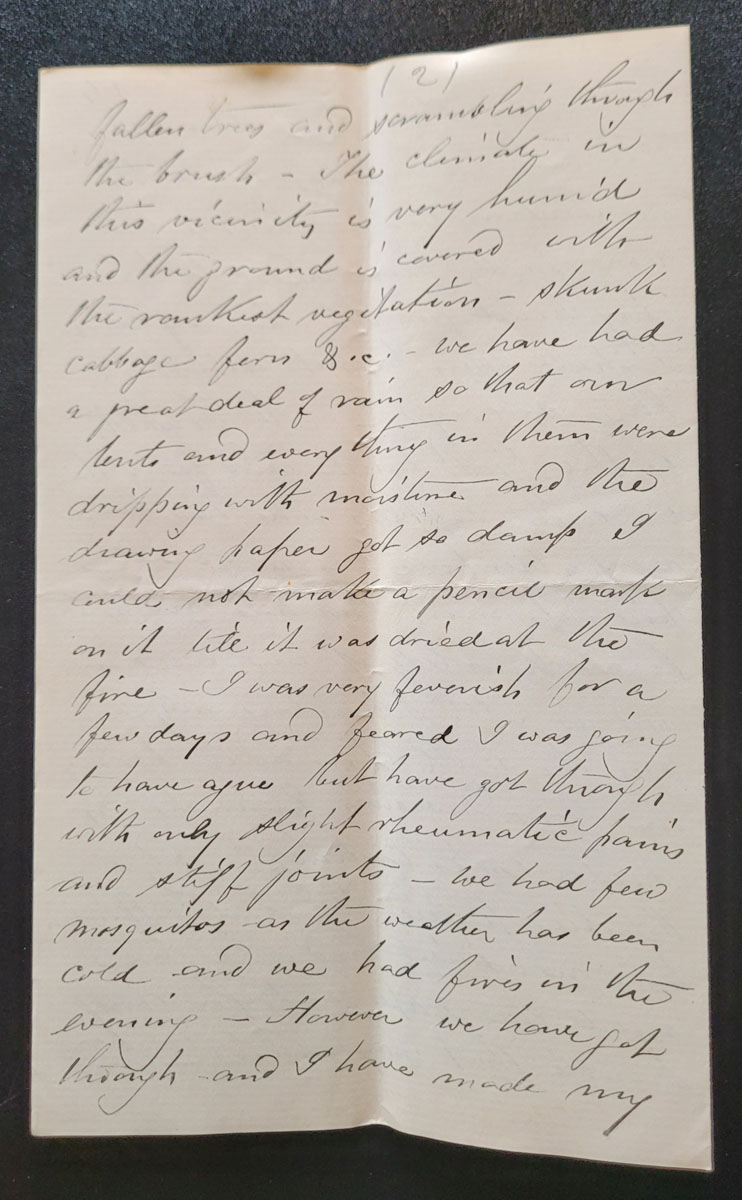 (2)
fallen trees and scrambling through
the brush - The climate in
this vicinity is very humid
and the ground is covered with
the rankest vegitation - skunk
cabbage fern &.c. - we have had
a great deal of rain so that our
tents and every thing in them were
dripping with moisture and the
drawing paper got so damp I
could not make a pencil mark
on it till it was dried at the
fire - I was very feverish for a
few days and feared I was going
to have ague but have got through
with only slight rheumatic pains
and stiff joints - we had few
mosquitos as the weather has been
cold and we had fires in the
evening - However we have got
through and I have made my